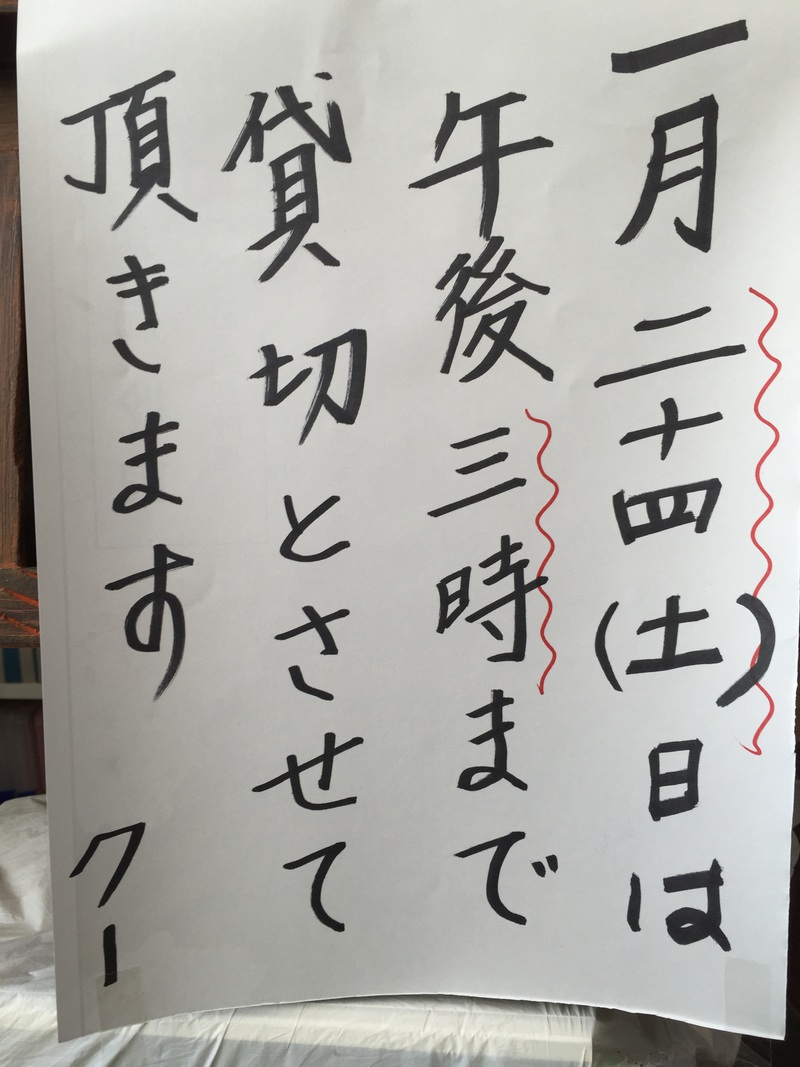 一月二十四(土)日は
午後三時まで
貸切とさせて
頂きます クー